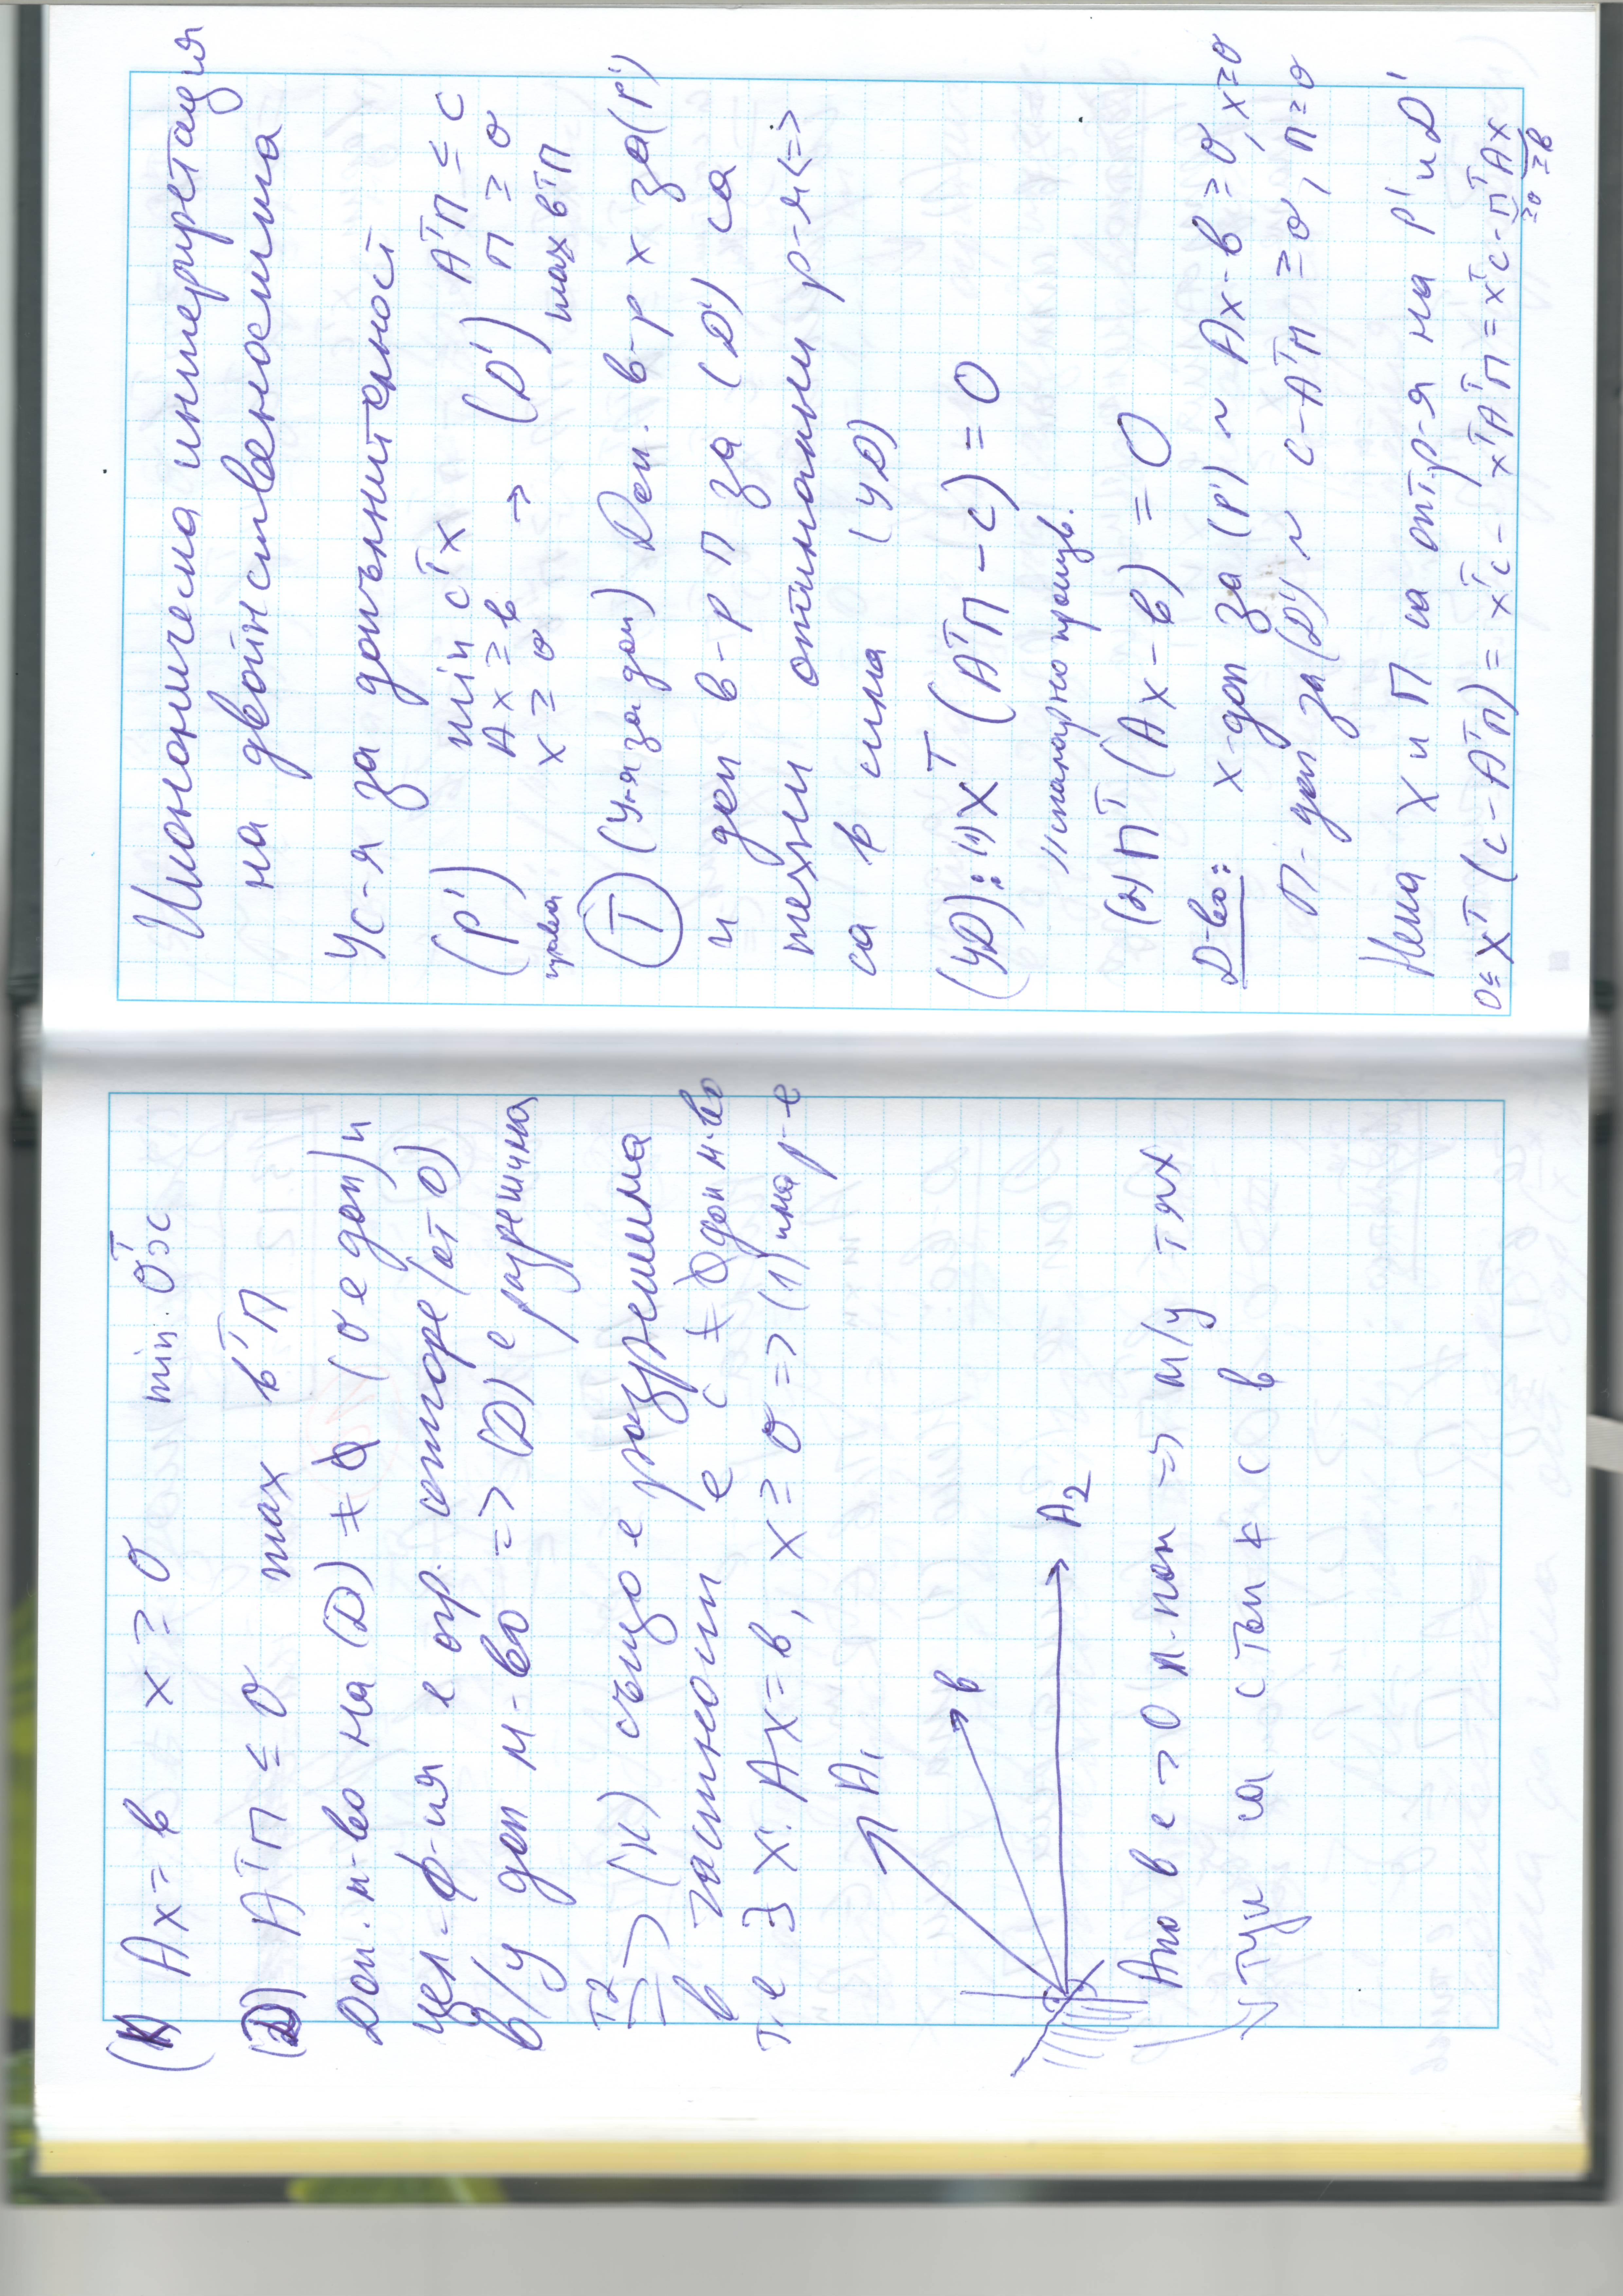 (К) Ax = в x ≥ 0 min 0ᵀx
(D) AᵀП ≤ 0 max вᵀП
Доп. м-во на (D) ≠ ∅ (0 е доп) и
цел. ф-ия е огр. отгоре (от 0)
в/у доп м-во => (D) е разрешима
T2 => (К) също е разрешима
в частност е с ≠ ∅ доп м-во
т.е ∃ x: Ax = в, x ≥ 0 => (1) има р-е
A₁
в
A₂
Ако в е → 0 п-пом => м/у тях
тупи са с тъп ∢ с в
Икономическа интерпретация
на двойнствеността
Ус-я за допълнителност
(P') min cᵀx → (D') AᵀП ≤ c
права Ax ≥ в П ≥ 0
x ≥ 0 max вᵀП
(Т) (Ус-я за доп) Доп. в-р x за (P')
и доп в-р П за (D') са
техни оптимални р-я <=>
са в сила (УД)
(УД): (1) xᵀ(AᵀП - c) = 0
скаларно произв.
(2) Пᵀ(Ax - в) = 0
D-во: x-доп за (P') ~ Ax - в ≥ 0, x ≥ 0
П-доп за (D') ~ c - AᵀП ≥ 0, П ≥ 0
Нека x и П са опт. р-я на P' и D'
0 ≤ xᵀ(c - AᵀП) = xᵀc - xᵀAᵀП = xᵀc - ПᵀAx
≥0 ≥в